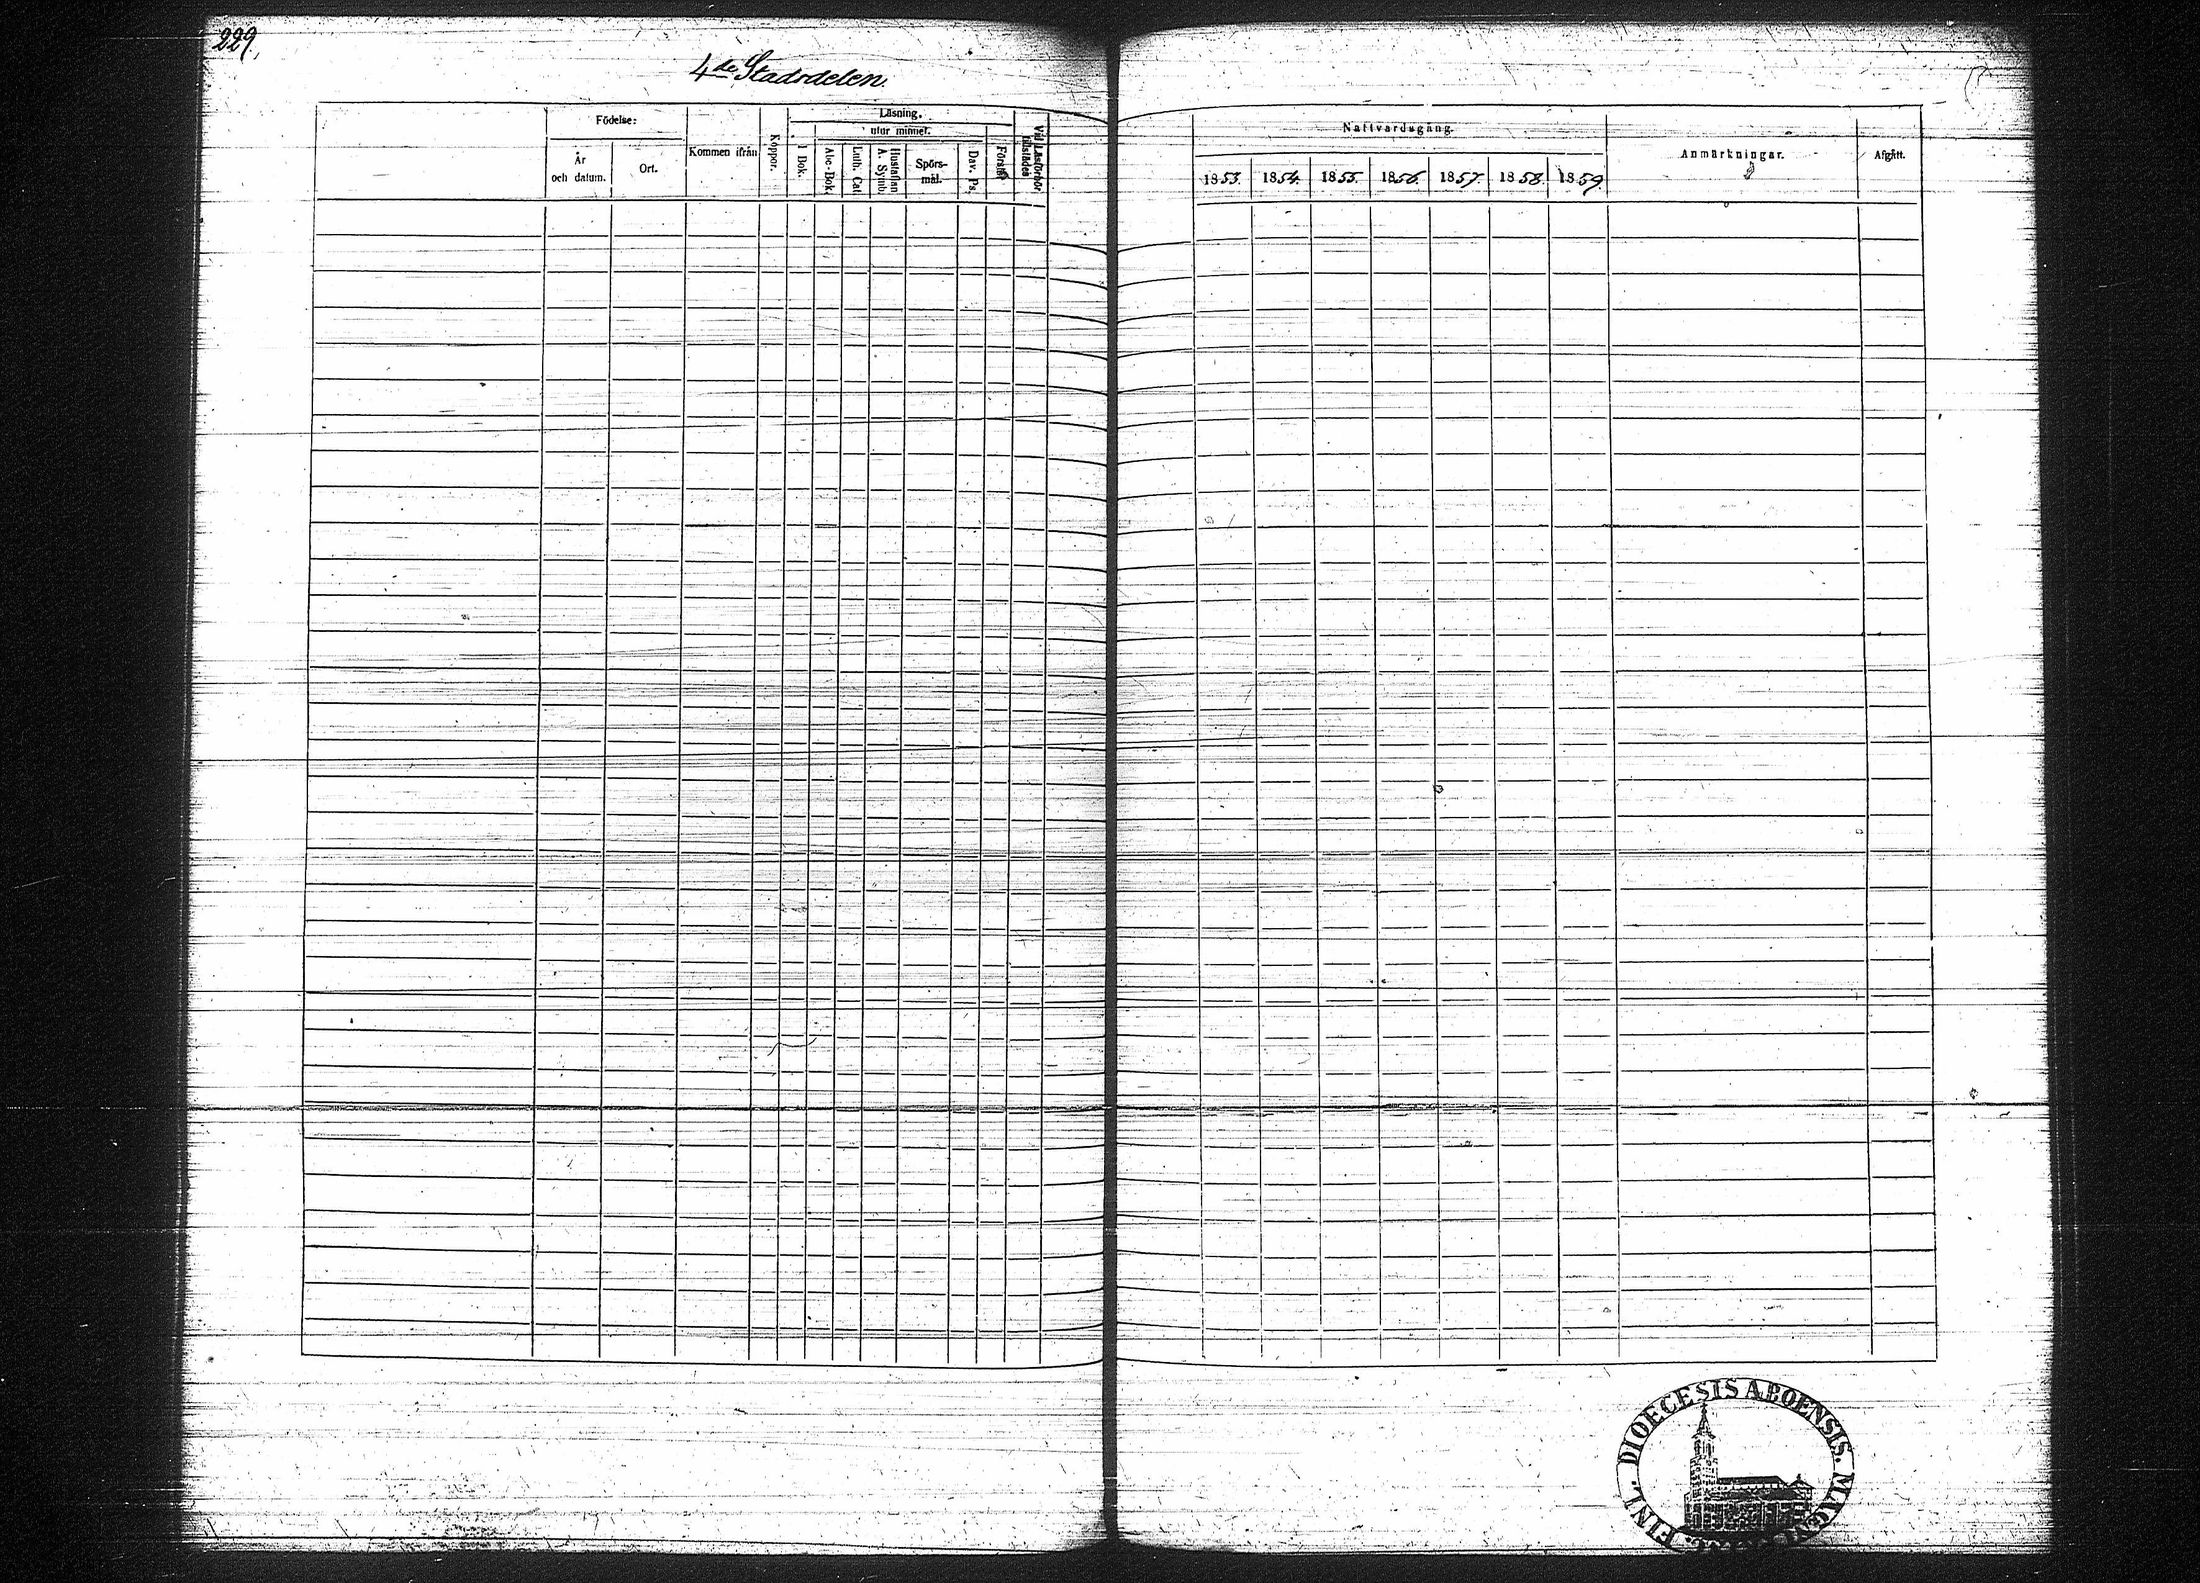 229.
4de Stadsdelen.
Födelse:
År
och datum.
Ort.
Kommen ifrån
Koppor.
Läsning.
utur minnet.
I Bok.
Abc-Bok.
Luth. Cat.
Hustaflan
A. Symb.
Spörs-
mål.
Dav. Ps.
Förstår
Vid Läsförhör
tillstädes
Nattvardsgång.
1853. 1854. 1855. 1856. 1857. 1858. 1859.
Anmärkningar.
Afgått.
FINL. DIOECESIS ABOENSIS. MAGNI